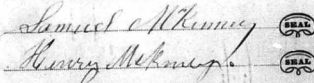 Samuel McKinney SEAL
Henry McKinney. SEAL